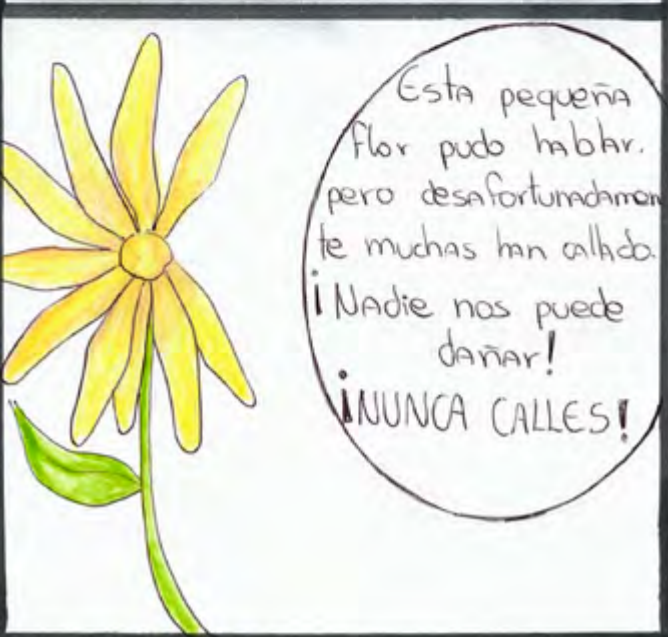 Esta pequeña
flor pudo hablar.
pero desafortunadamen
te muchas han callado.
¡Nadie nos puede
dañar!
¡NUNCA CALLES!